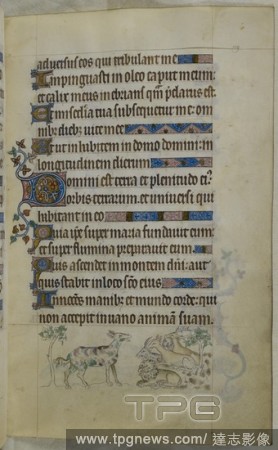 aduersus eos qui tribulant me
Impinguasti in oleo caput meum:
et calix meus inebrians qm pclarus est
misedia tua subsequetur me: om
nib; dieb; uite mee
Et ut inhabitem in domo domini: in
longitudinem dierum
Domini est terra et plenitudo ei:
orbis terrarum et uniuersi qui
habitant in eo
Quia ipe super maria fundauit eum:
et super flumina preparauit eum
Quis ascendet in montem dni: aut
quis stabit in loco sco eius
Innocens manib; et mundo corde: qui
non accepit in uano animam suam
TPG
www.tpgnews.com / 達志影像